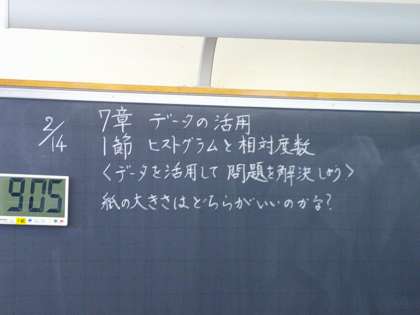 2/14
7章 データの活用
1節 ヒストグラムと相対度数
<データを活用して問題を解決しよう>
紙の大きさはどちらがいいのかな?
9:05